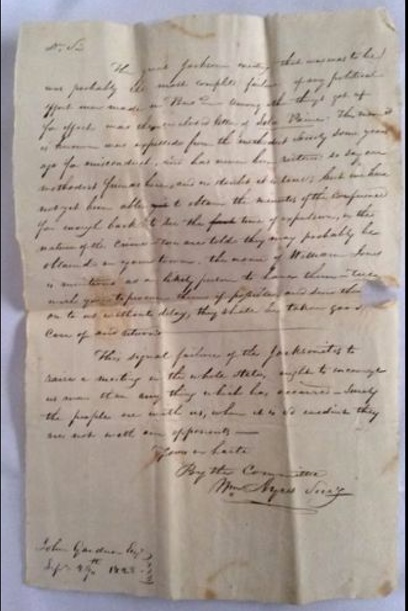 Dr. Sir
The great Jackson meeting that was was to be)
was probably the most complete failure of any political
effort ever made in Among the things got up
for effect was the enclosed letter of John The man it
is known was expelled from the methodist Society some years
ago for misconduct, and has never been restored so say our
methodist friends here, and no doubt it is true; but we have
not yet been able to obtain the minutes of the Conference
far enough back to see the time of expulsion, or the
nature of the Crime - we are told they may probably be
obtained in your town. the name of William Jones
is mentioned as a likely person to have them
with you to procure them if possible, and send them
on to us without delay, they shall be taken good
care of and returned
This signal failure of the Jacksonites to
raise a meeting in the whole state, ought to encourage
us more than any thing which has occurred - Surely
the people are with us, when it is so evident they
are not with our opponents -
Yours in haste
By the Committee
Wm. Ayres Secy
John Gardner Esqr
Sept 9th 1828